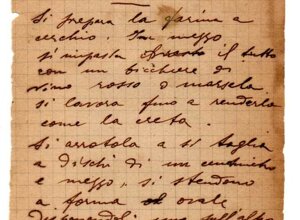 Si prepara la farina a
cerchio. In mezzo
si impasta il tutto
con un bicchiere di
vino rosso o marsala
si lavora fino a renderla
come la creta.
Si arrotola e si taglia
a dischi di un centimetro
e mezzo, si stendono
a forma ovale